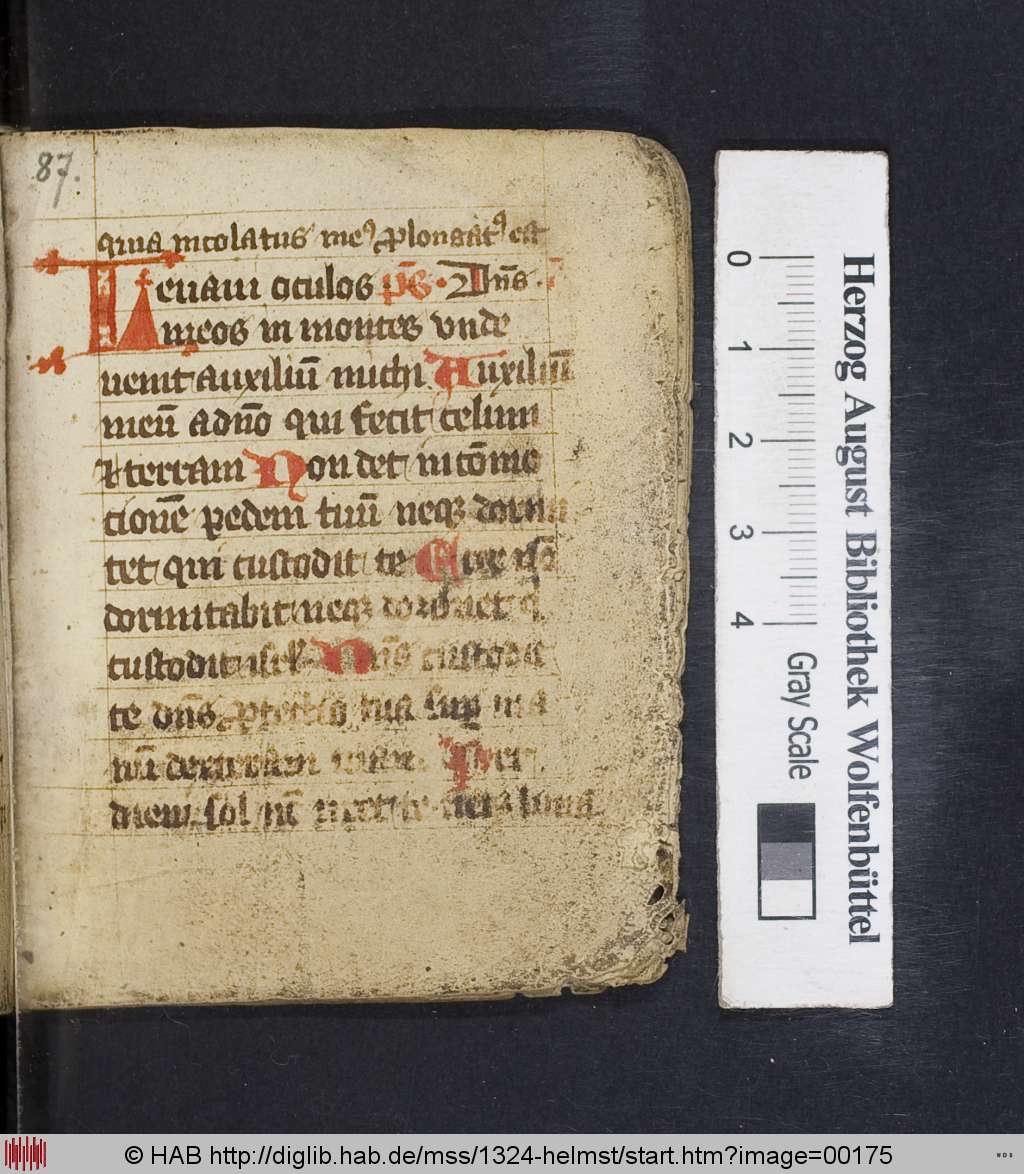 87.
quia incolatus meꝰ ꝓlongatꝰ est
Leuaui oculos p̄s. Dn̄s.
meos in montes vnde
ueniet auxiliū michi Auxiliū
meū a dn̄o qui fecit celum
⁊ terram Non det in cōmo
tionē pedem tuū neqꝫ dormi
tet qui custodit te Ecce nō
dormitabit neqꝫ dormiet q̇
custodit isrl̄ Dn̄s custodit
te dn̄s ꝓtectio tua suꝑ ma
nū dexteram tuam Per
diem sol nō te neqꝫ luna
0 1 2 3 4
Gray Scale
Herzog August Bibliothek Wolfenbüttel
© HAB http://diglib.hab.de/mss/1324-helmst/start.htm?image=00175